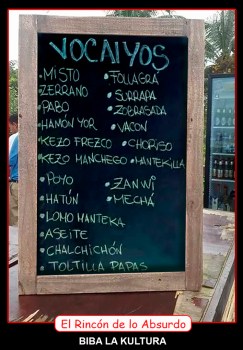 VOCAIYOS
• MISTO • FUAGRÁ
• ZERRANO • SURRAPA
• PABO • ZOBRASADA
• HAMÓN YOR • VACON
• KEZO FREZCO • CHORISO
• KEZO MANCHEGO • MANTEKILLA
• POYO • ZANWI
• HATÚN • MECHÁ
• LOMO MANTEKA
• ASEITE
• CHALCHICHÓN
• TOLTILLA PAPAS
El Rincón de lo Absurdo
BIBA LA KULTURA